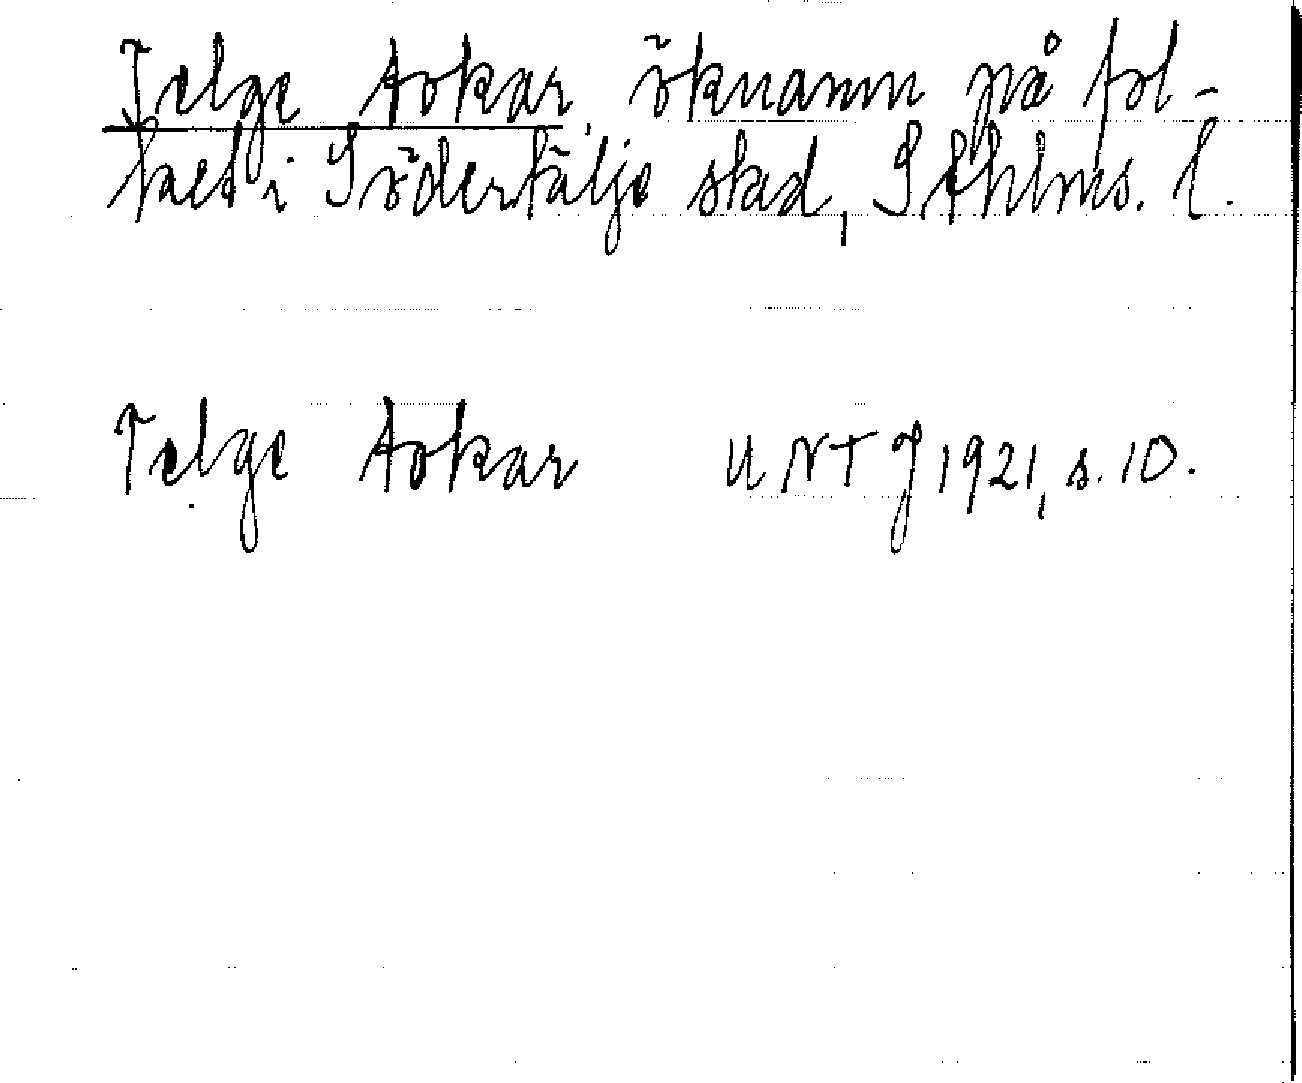 Telge tokar, öknamn på fol-
ket i Södertälje stad, Sthlms. l.
Telge tokar UNTJ 1921, s. 10.